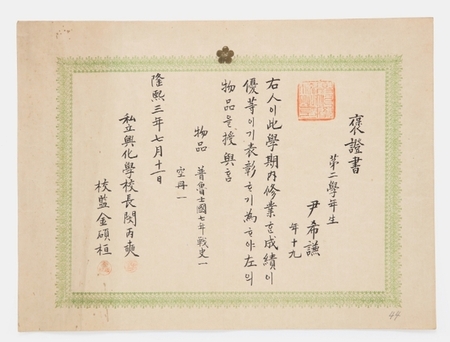 褒證書
第二學年生
尹希謙
年十九
右人이此學期內修業한成績이
優等이기表彰하기爲하야左의
物品을授與홈
物品 普魯士國七年戰史一
空冊一
隆熙三年七月十二日
私立興化學校長閔丙奭
校監金碩桓
44